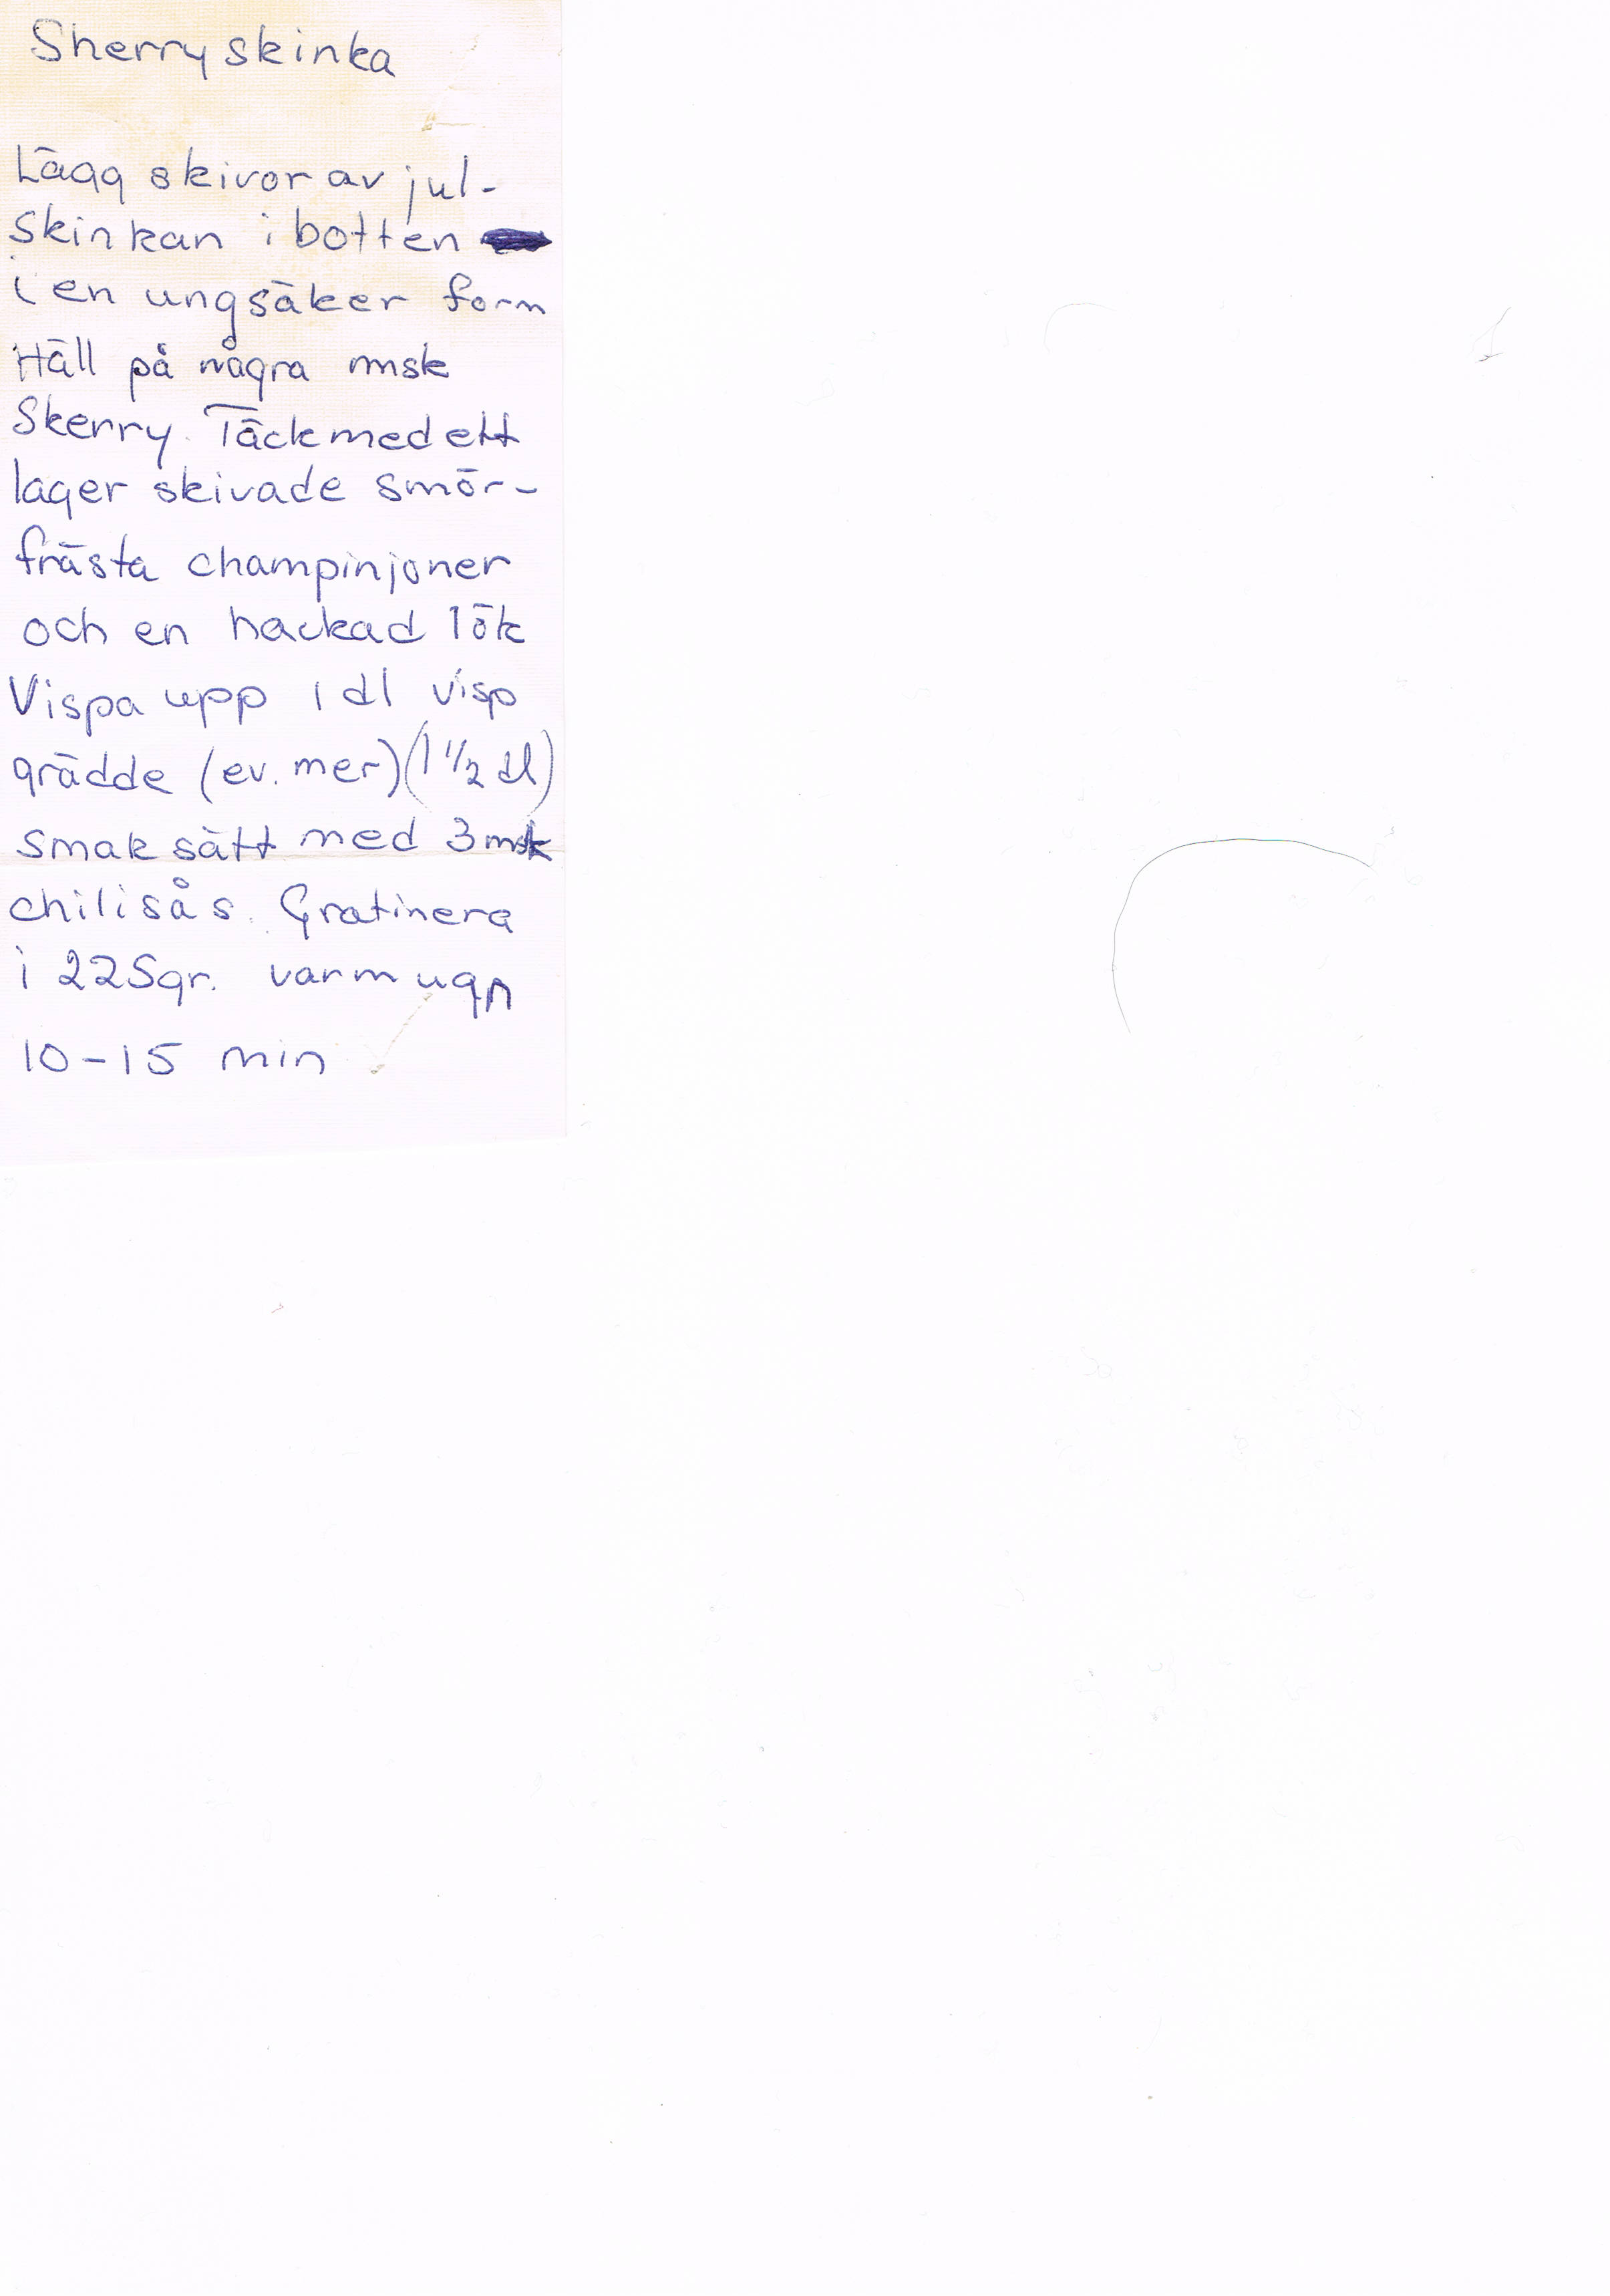 Sherryskinka
Lägg skivor av jul-
skinkan i botten
i en ungsäker form
Häll på några msk
Skerry. Täck med ett
lager skivade smör-
frästa champinjoner
och en hackad lök
Vispa upp 1 dl visp
grädde (ev. mer) (1 1/2 dl)
smaksätt med 3 msk
chilisås. Gratinera
i 225gr. varm ugn
10-15 min